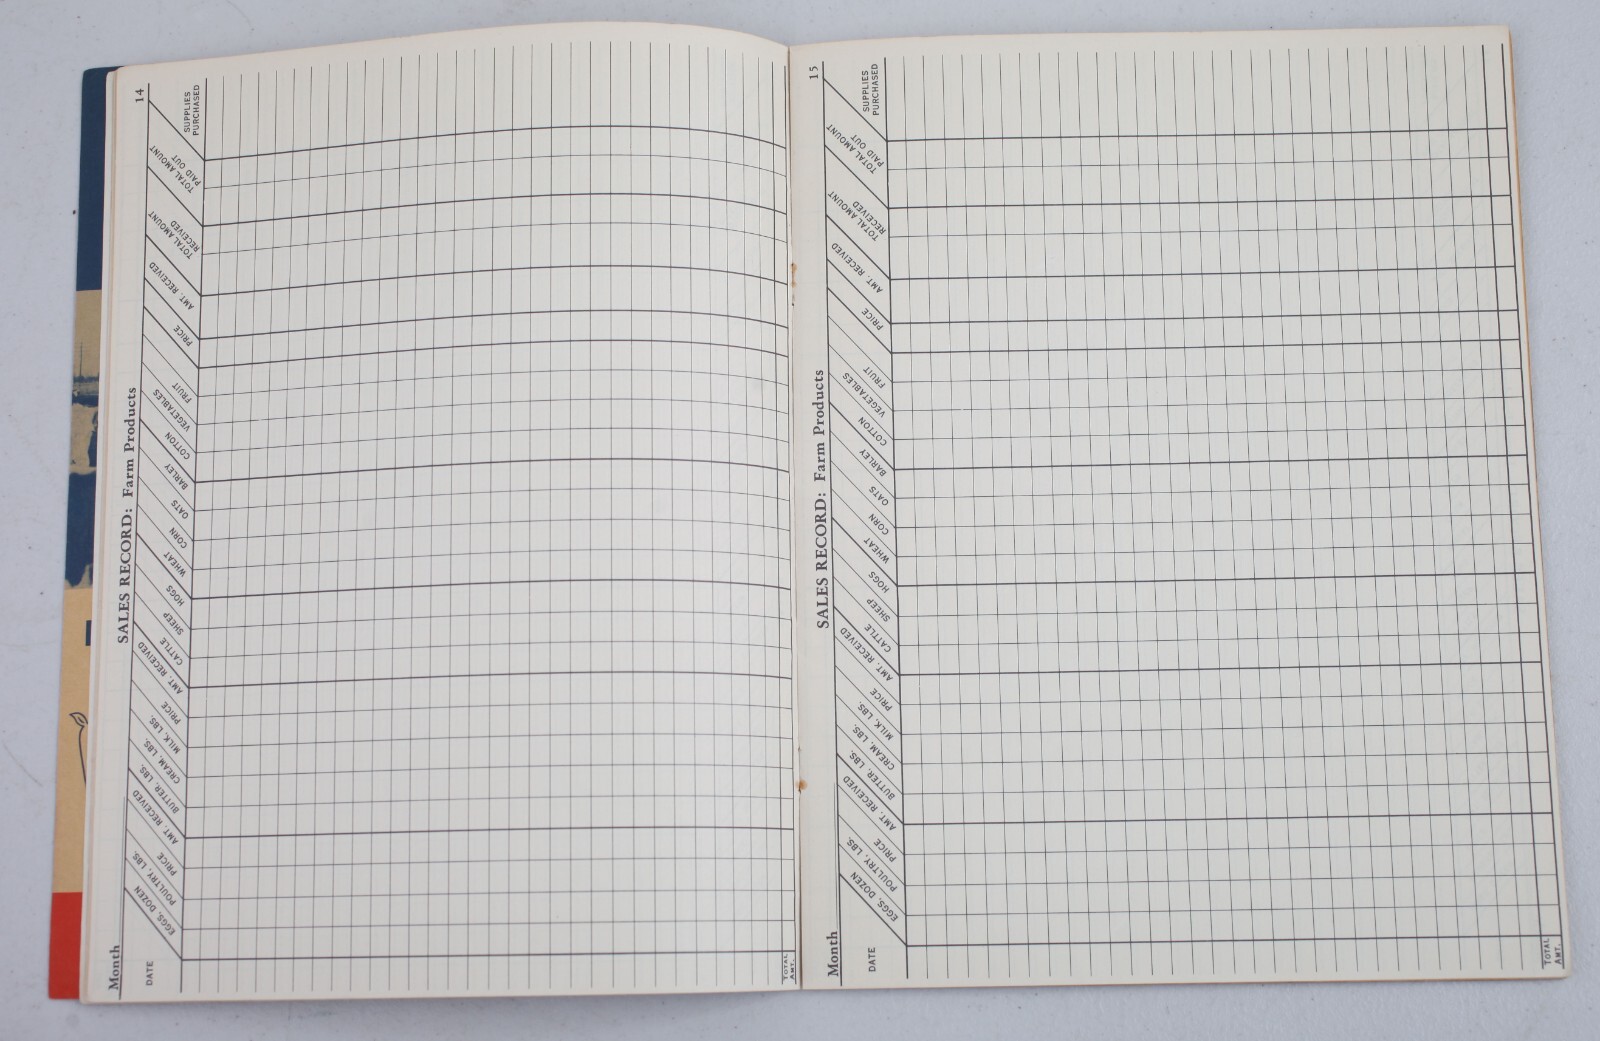 14
SALES RECORD: Farm Products
Month
DATE
EGGS, DOZEN
POULTRY, LBS.
PRICE
AMT. RECEIVED
BUTTER, LBS.
CREAM, LBS.
MILK, LBS.
PRICE
AMT. RECEIVED
CATTLE
SHEEP
HOGS
WHEAT
CORN
OATS
BARLEY
COTTON
VEGETABLES
FRUIT
PRICE
AMT. RECEIVED
TOTAL AMOUNT
RECEIVED
TOTAL AMOUNT
PAID OUT
SUPPLIES
PURCHASED
TOTAL
AMT.
15
SALES RECORD: Farm Products
Month
DATE
EGGS, DOZEN
POULTRY, LBS.
PRICE
AMT. RECEIVED
BUTTER, LBS.
CREAM, LBS.
MILK, LBS.
PRICE
AMT. RECEIVED
CATTLE
SHEEP
HOGS
WHEAT
CORN
OATS
BARLEY
COTTON
VEGETABLES
FRUIT
PRICE
AMT. RECEIVED
TOTAL AMOUNT
RECEIVED
TOTAL AMOUNT
PAID OUT
SUPPLIES
PURCHASED
TOTAL
AMT.